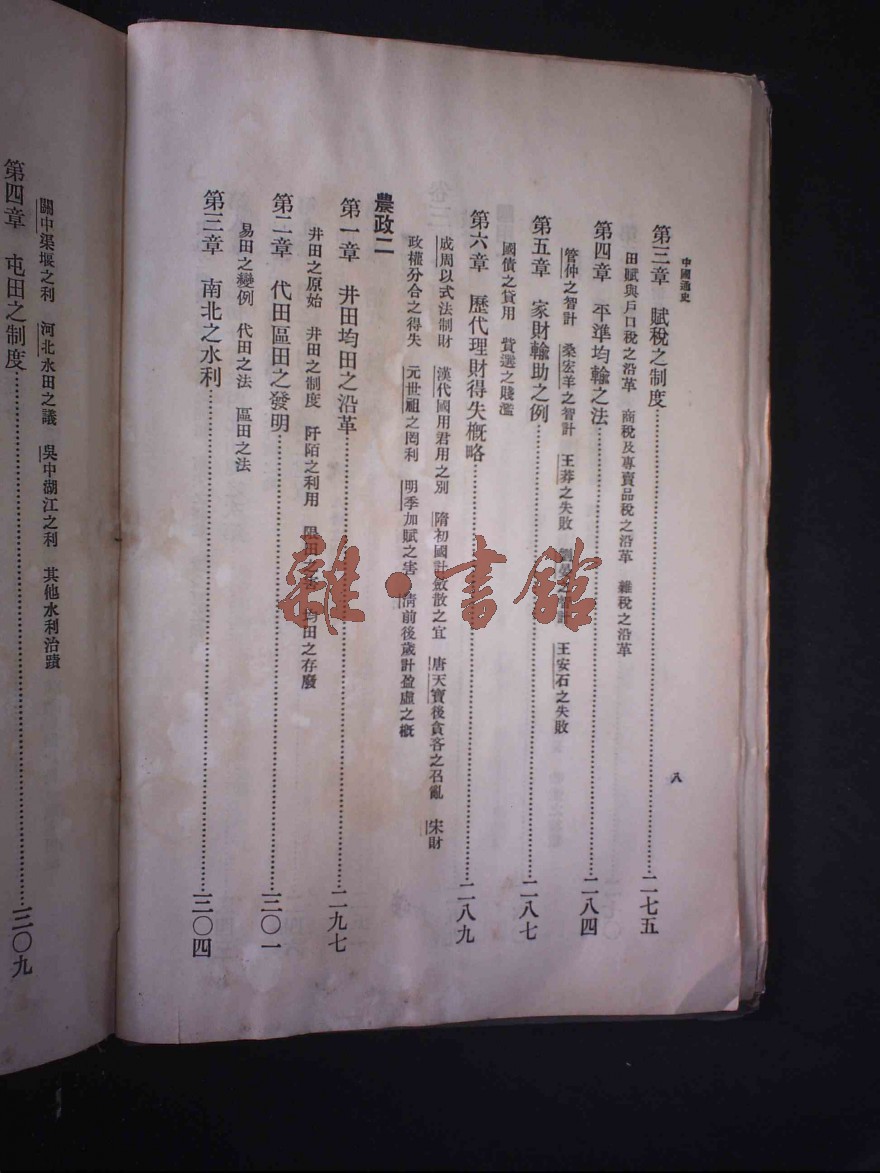 中國通史
八
第三章　賦稅之制度……二七五
田賦與戶口稅之沿革　商稅及專賣品稅之沿革　雜稅之沿革
第四章　平準均輸之法……二八四
管仲之智計　桑宏羊之智計　王莽之失敗　劉晏之智計　王安石之失敗
第五章　家財輸助之例……二八七
國債之貸用　貲選之賤濫
第六章　歷代理財得失概略……二八九
成周以式法制財　漢代國用君用之別　隋初國計斂散之宜　唐天寶後貪吝之召亂　宋財
政權分合之得失　元世祖之罔利　明季加賦之害　清前後歲計盈虛之概
農政二
第一章　井田均田之沿革……二九七
井田之原始　井田之制度　阡陌之利用　限田之　均田之存廢
第二章　代田區田之發明……三〇一
易田之變例　代田之法　區田之法
第三章　南北之水利……三〇四
關中渠堰之利　河北水田之議　吳中湖江之利　其他水利治蹟
第四章　屯田之制度……三〇九
雜·書館